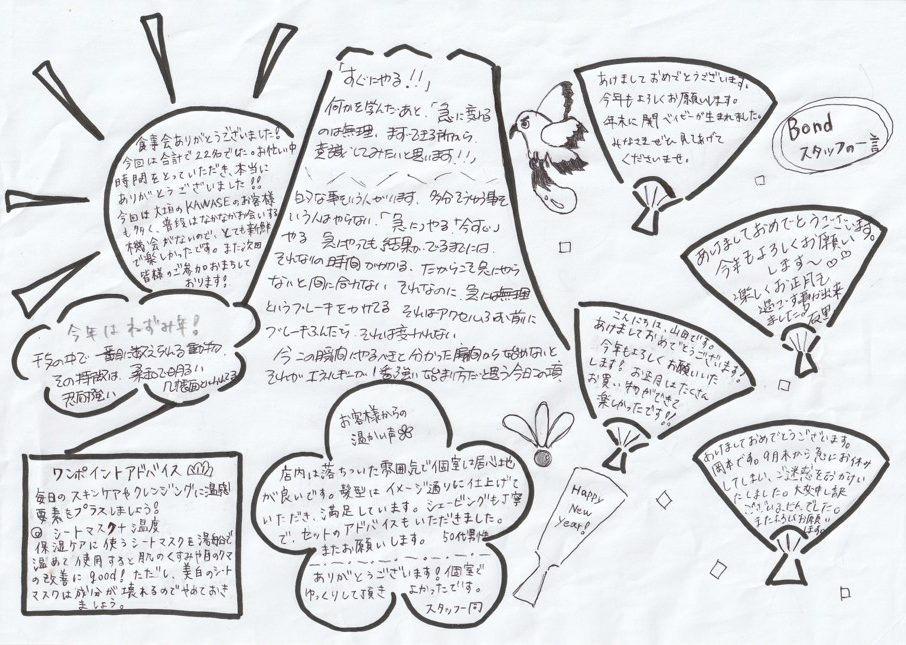 食事会ありがとうございました!
今回は合計で22名でした。お忙い中
時間をとっていただき、本当に
ありがとうございました!!
今回は大垣のKAWASEのお客様
も多く、普段はなかなかお会いする
機会がないので、とても新鮮
で楽しかったです。また次回
皆様のご参加おまちして
おります!
「すぐにやる!!」
何かを学んだあと、「急に変わる
のは無理、まずできる所から
意識してみたいと思います!!」
いう人はやらない、「急に」やる「今すぐ」
やる 急にやっても結果がでるまでには、
それなりの時間がかかる、だからこそ急にやら
ないと間に合わない それなのに、急には無理
というブレーキをかけてる それはアクセルふむ前に
ブレーキふんだら、それは変われない。
今この瞬間にやるべきと分かった瞬間から始めないと
あけましておめでとうございます。
今年もよろしくお願いします。
年末に関ベイビーが生まれました。
みなさまぜひ見てあげて
くださいませ。
Bond
スタッフの一言
あけましておめでとうございます。
今年もよろしくお願い
します〜♡♡
楽しくお正月も
過ごす事が出来
ました。
こんにちは、山田です。
あけましておめでとうございます。
今年もよろしくお願いいた
します! お正月はたくさん
お買い物ができて
楽しかったです!!
あけましておめでとうございます。
岡本です。9月末から急にお休み
してしまい、ご迷惑をおかけい
たしました。大変申し訳
ございませんでした。
またよろしくお願い
します。
今年はねずみ年!
干支の中で一番目に数えられる動物。
その特徴は、
忍耐強い
ワンポイントアドバイス
毎日のスキンケアやクレンジングに温度
要素をプラスしましょう!
◎ シートマスク+温度
保湿ケアに使うシートマスクを湯船で
温めて使用すると肌のくすみや目のクマ
の改善にgood! ただし、美白のシート
マスクは成分が壊れるのでやめておき
ましょう。
お客様からの
温かい声
店内は落ちついた雰囲気で個室は居心地
が良いです。髪型はイメージ通りに仕上げて
いただき、満足しています。シェービングも丁寧
で、セットのアドバイスもいただきました。
またお願いします。 50代男性
ありがとうございます!個室で
ゆっくりして頂き よかったです。
スタッフ一同
Happy
New
Year!